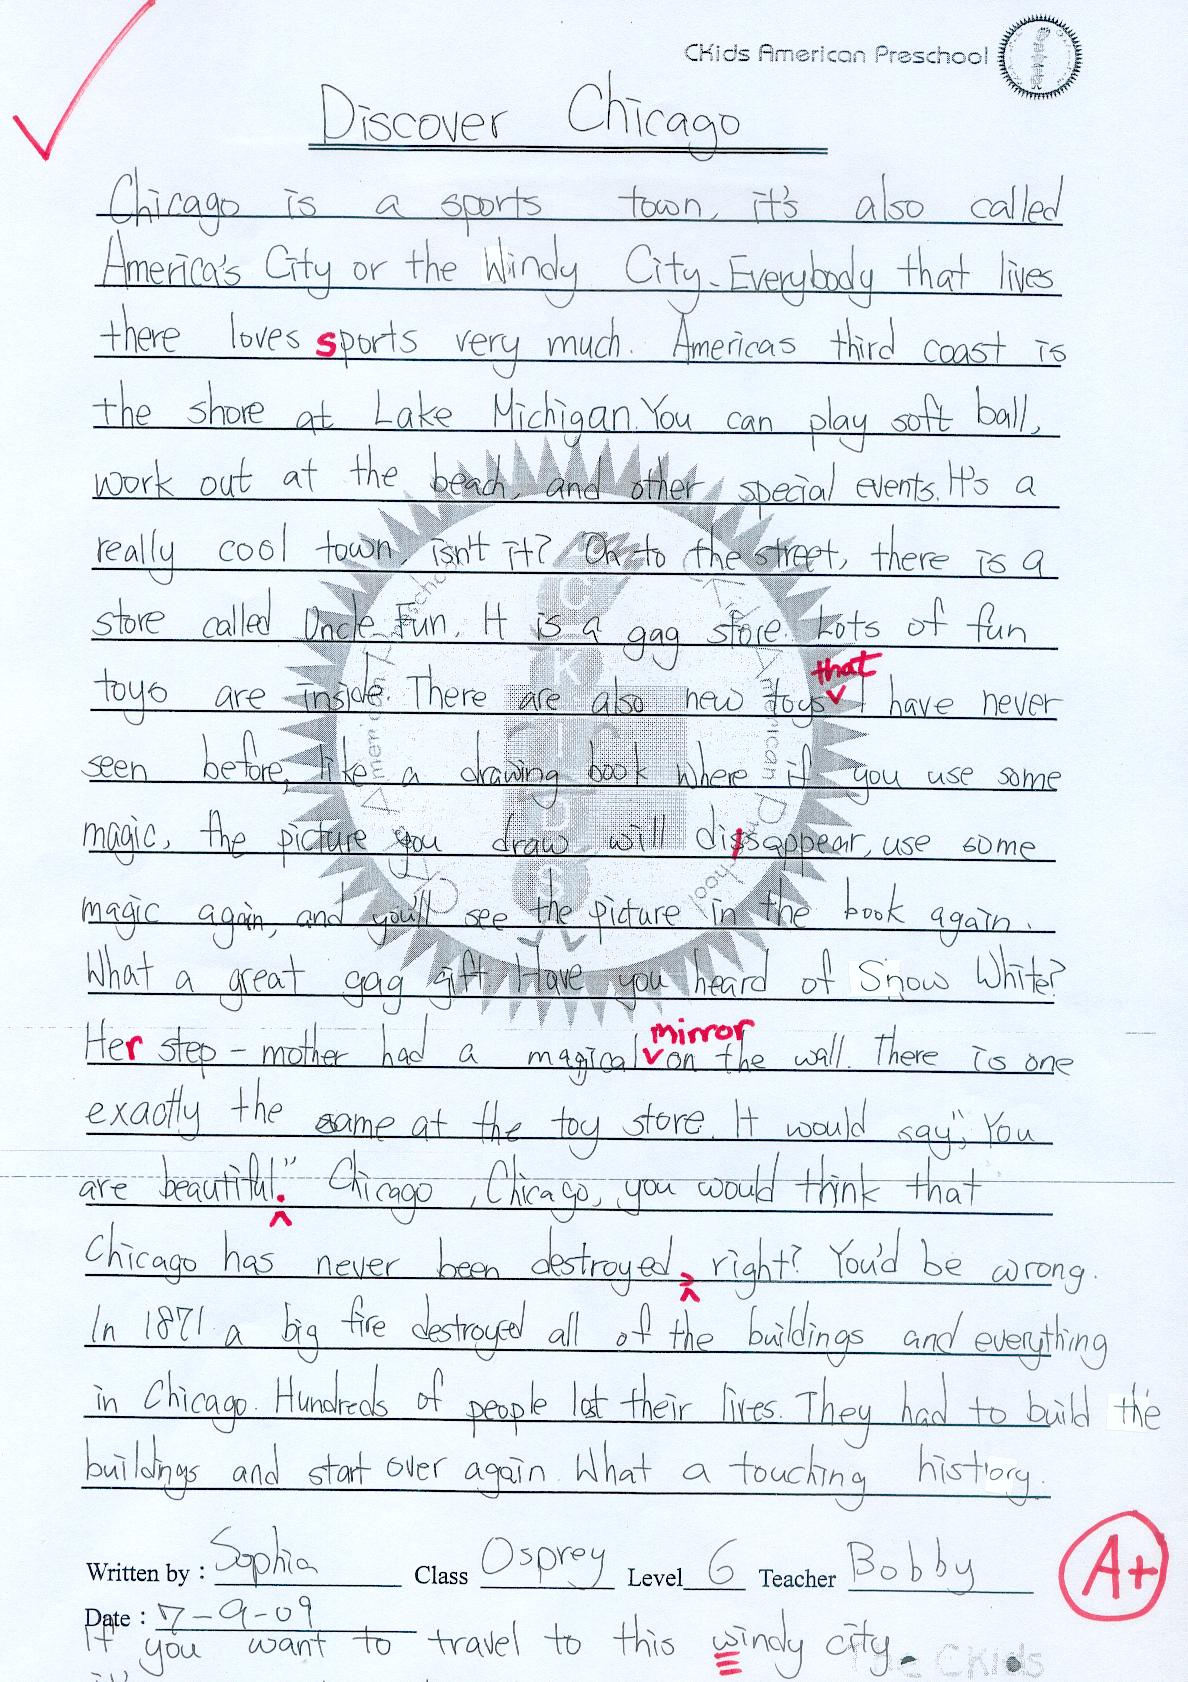 CKids American Preschool
Discover Chicago
Chicago is a sports town, it's also called
America's City or the Windy City. Everybody that lives
there loves sports very much. Americas third coast is
the shore at Lake Michigan. You can play soft ball,
work out at the beach, and other special events. It's a
really cool town, isn't it? On to the street, there is a
store called Uncle Fun. It is a gag store. Lots of fun
that
toys are inside. There are also new toys I have never
seen before, like a drawing book where if you use some
magic, the picture you draw will dissappear, use some
magic again, and you'll see the picture in the book again.
What a great gag gift. Have you heard of Snow White?
mirror
Her step-mother had a magical on the wall. There is one
exactly the same at the toy store. It would say, "You
are beautiful." Chicago, Chicago, you would think that
Chicago has never been destroyed, right? You'd be wrong.
In 1871 a big fire destroyed all of the buildings and everything
in Chicago. Hundreds of people lost their lives. They had to build the
buildings and start over again. What a touching history.
A+
Written by : Sophia Class Osprey Level 6 Teacher Bobby
Date : 7-9-09
If you want to travel to this windy city
CKids